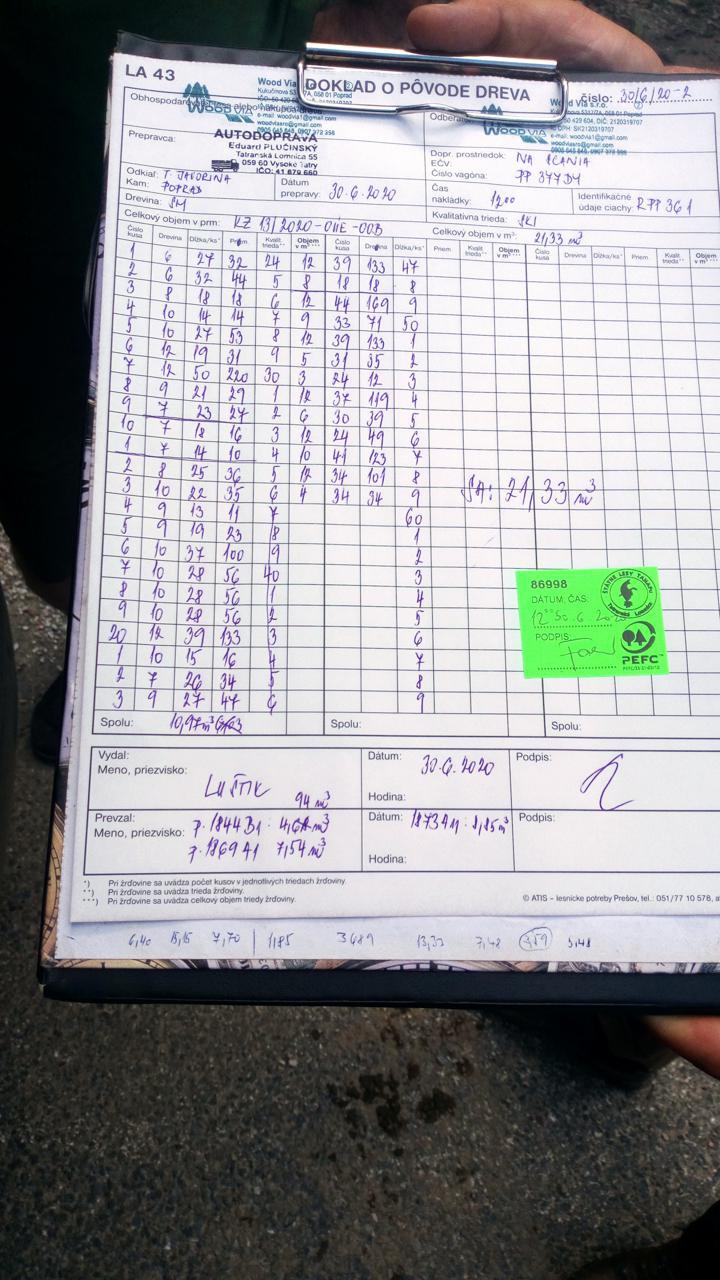 LA 43
DOKLAD O PÔVODE DREVA
číslo: 30/6/20-2
Wood Via
WOODVIA
Wood Via s.r.o.
e-mail: woodvia1@gmail.com
woodviasro@gmail.com
Prepravca:
AUTODOPRAVA
Eduard PLUČINSKÝ
Tatranská Lomnica 55
059 60 Vysoké Tatry
IČO: 41 879 660
Dopr. prostriedok: NA SCANIA
EČV:
Číslo vagóna: PP 377DY
Odkiaľ: T. JAVORINA
Kam: POPRAD
Dátum prepravy: 30.6.2020
Čas nakládky: 12 00
Identifikačné údaje ciachy: RPP 361
Drevina: SM
Kvalitatívna trieda:
Celkový objem v prm: KZ 13/2020-OIIE-OOB
Celkový objem v m³: 21,33 m³
Číslo kusa Drevina Dĺžka/ks* Priem. Kvalit. trieda** Objem v m³*** Číslo kusa Drevina Dĺžka/ks* Priem. Kvalit. trieda** Objem v m³*** Číslo kusa Drevina Dĺžka/ks* Priem. Kvalit. trieda** Objem v m³***
1 6 27 32 24 12 39 133 47
2 6 32 44 5 8 18 18 8
3 8 18 18 6 12 44 169 9
4 10 14 14 7 9 33 71 50
5 10 27 53 8 12 39 133 1
6 12 19 31 9 5 31 35 2
7 12 50 220 30 3 24 12 3
8 9 21 29 1 12 37 119 4
9 7 23 27 2 6 30 39 5
10 7 18 16 3 12 24 49 6
1 7 14 10 4 10 41 123 7
2 8 25 36 5 12 34 101 8
3 10 22 35 6 4 34 34 9
4 9 13 11 7 60
5 9 19 23 8 1
6 10 37 100 9 2
7 10 28 56 40 3
8 10 28 56 1 4
9 10 28 56 2 5
20 12 39 133 3 6
1 10 15 16 4 7
2 7 26 34 5 8
3 9 27 47 6 9
21,33 m³
86998
ŠTÁTNE LESY TANAPU
Tatranská Lomnica
DÁTUM, ČAS:
PODPIS:
PEFC
Spolu: 10,97m³
Spolu:
Spolu:
Vydal:
Meno, priezvisko: LUŠTIK
94 m³
Dátum: 30.6.2020
Hodina:
Podpis:
Prevzal:
Meno, priezvisko:
p. 1844 B1:
p. 1869 A1 7,54 m³
Dátum: 1873 A11:
Hodina:
Podpis:
*) Pri žrďovine sa uvádza počet kusov v jednotlivých triedach žrďoviny.
**) Pri žrďovine sa uvádza trieda žrďoviny.
***) Pri žrďovine sa uvádza celkový objem triedy žrďoviny.
© ATIS – lesnícke potreby Prešov, tel.: 051/77 10 578,
6,40 15,15 7,70 1,85 3689 13,33 7,48 5,48